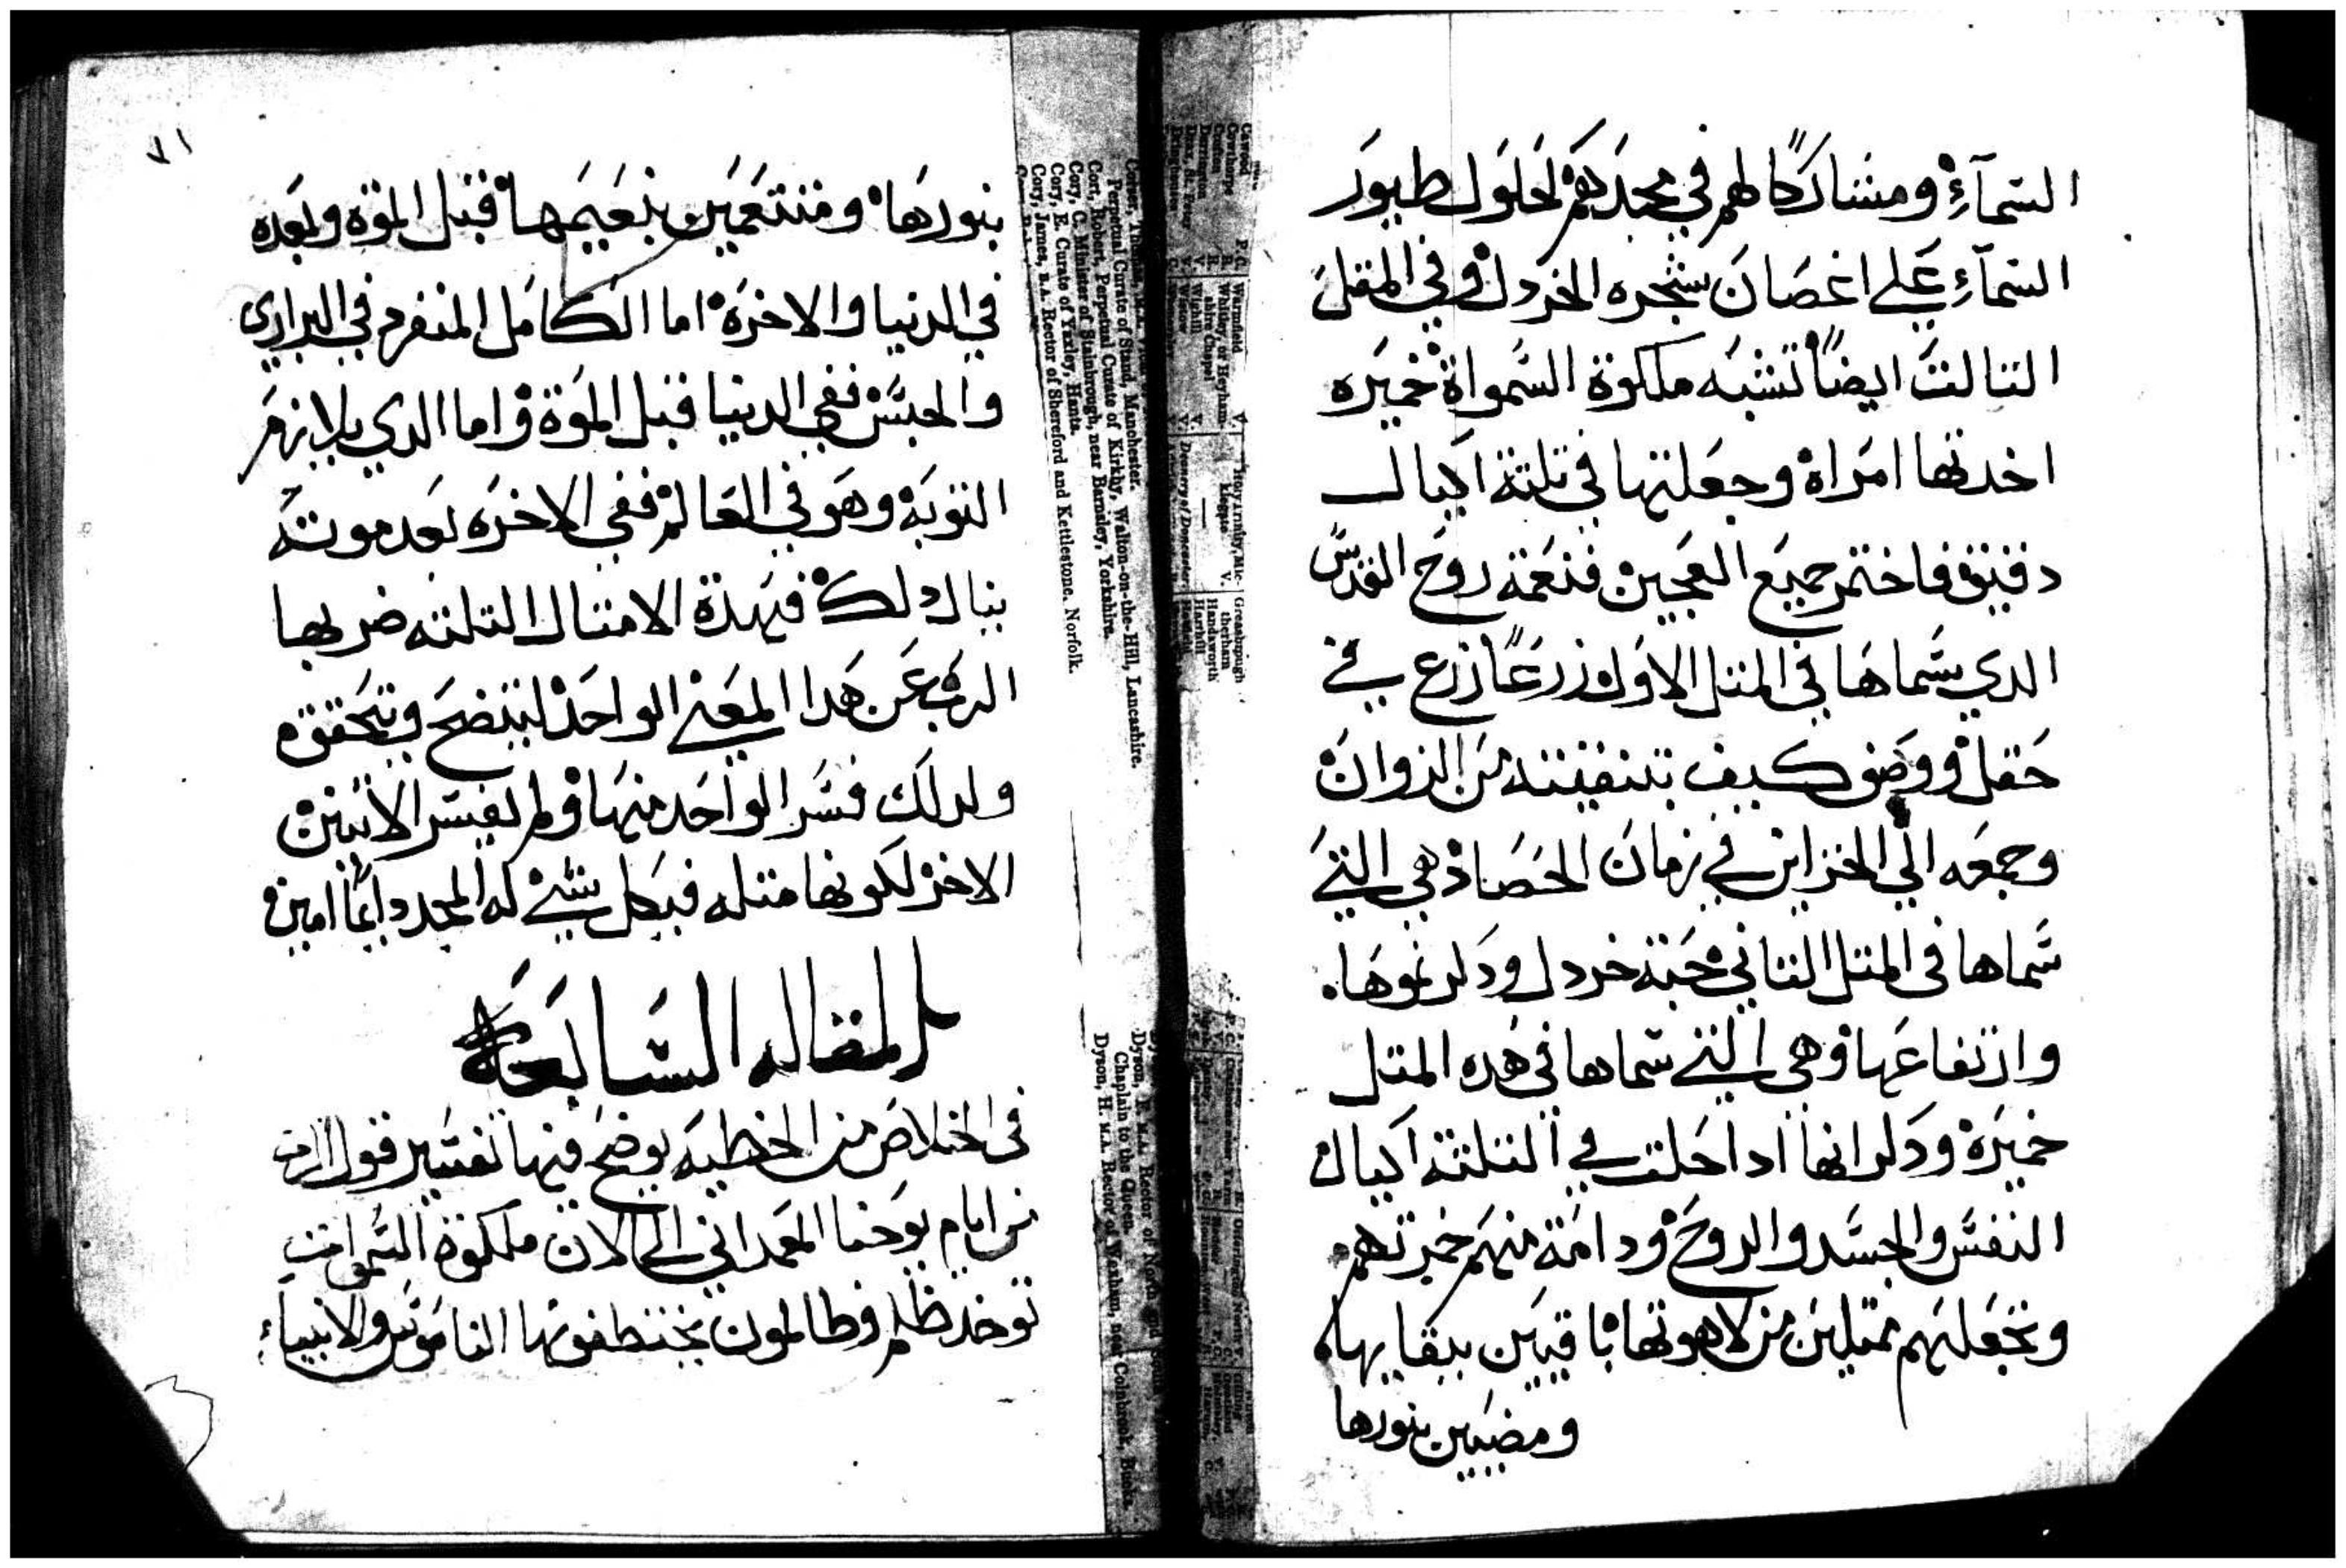 السمآء ومشاركًا لهم في مجدهم لحلول طيور
السمآء علي اغصان شجره الخردل وفي المقل
التالت ايضاً تشبه ملكوة السمواة خميره
اخدتها امراة وجعلتها في تلتة اكيال
دقيق فاختمر جميع العجين فنعمة روح القدس
الدي سماها في المتل الاول زرعاً زرع في
حقل ووصف كيف تنقيته من الزوان
وجمعه الي الخزاين في زمان الحصاد هي التي
سماها في المتل التاني حبة خردل ودكر نموها
وارتفاعها وهي التي سماها في هده المتل
خميرة ودكر انها ادا حلت في التلتة اكيال
النفس والجسد والروح ودامة منهم خمرتهم
وتجعلهم ممتلين من لاهوتها باقيين ببقايها
ومضيين بنورها
٧١
بنورها ومتنعمين بنعيمها قبل الموة وبعده
في الدنيا والاخرة اما الكامل المنفرد في البراري
والحبس ففي الدنيا قبل الموة واما الدي يلازم
التوبة وهو في العالم ففي الاخره بعد موته
ينال دلك فهدة الامتال التلته ضربها
الرب عن هدا المعني الواحد ليتضح ويتحقق
ولدلك فسر الواحد منها ولم يفسر الاتنين
الاخر لكونها متله فبكل شي له المجد دايماً امين
المقاله السابعة
في الخلاص من الخطيه يوضح فيها تفسير قول الرب
من ايام يوحنا المعمداني الي الان ملكوة السموات
توخد ظلم وظالمون يختطفونها الناموس والانبياء
Corser, Thomas, M.A.
Perpetual Curate of Stand, Manchester.
Cort, Robert, Perpetual Curate of Kirkby, Walton-on-the-Hill, Lancashire.
Cory, C. Minister of Stainbrough, near Barnsley, Yorkshire.
Cory, E. Curate of Yaxley, Hants.
Cory, James, B.A. Rector of Shereford and Kettlestone, Norfolk.
Dyson, F. M.A. Rector of North and
Chaplain to the Queen.
Dyson, H. M.A. Rector of Wexham, near Colnbrook, Bucks.